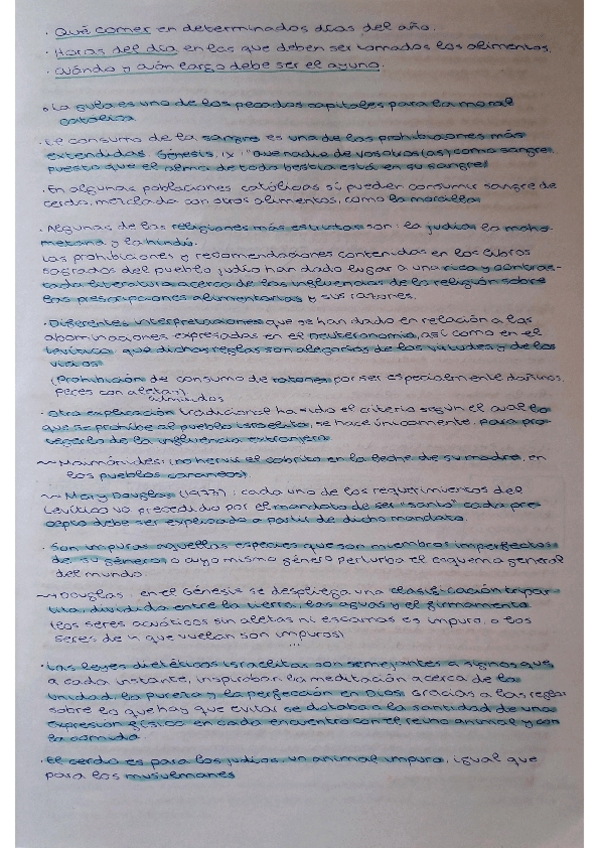 · Qué comer en determinados días del año.
· Horas del día en las que deben ser tomados los alimentos.
· Cuándo y cuán largo debe ser el ayuno.
· La gula es uno de los pecados capitales para la moral
católica
· El consumo de la sangre es una de las prohibiciones más
extendidas. Génesis, IX: "Que nadie de vosotros(as) coma sangre,
puesto que el alma de toda bestia está en su sangre"
· En algunas poblaciones católicas sí pueden consumir sangre de
cerdo, mezclada con otros alimentos, como la morcilla
· Algunas de las religiones más estrictas son: la judía, la maho-
metana y la hindú.
Las prohibiciones y recomendaciones contenidas en los libros
sagrados del pueblo judío han dado lugar a una rica y contras-
tada literatura acerca de las influencias de la religión sobre
las prescripciones alimentarias y sus razones.
· Diferentes interpretaciones que se han dado en relación a las
abominaciones expresadas en el Deuteronomio, así como en el
Levítico: que dichas reglas son alegorías de las virtudes y de los
vicios
(Prohibición de consumo de ratones por ser especialmente dañinos,
peces con aletas)
admitidos
· Otra explicación tradicional ha sido el criterio según el cual lo
que se prohíbe al pueblo israelita, se hace únicamente para pro-
tegerlo de la influencia extranjera
~ Maimónides: no hervir el cabrito en la leche de su madre, en
los pueblos cananeos).
~ Mary Douglas (1973): cada uno de los requerimientos del
Levítico va precedido por el mandato de ser "santo" cada pre-
cepto debe ser explicado a partir de dicho mandato
· Son impuras aquellas especies que son miembros imperfectos
de su género, o cuyo mismo género perturba el esquema general
del mundo.
~ Douglas: en el Génesis se despliega una clasificación tripar-
tita, dividida entre la tierra, las aguas y el firmamento
(los seres acuáticos sin aletas ni escamas es impura, o los
seres de 4 que vuelan son impuros)
...
· Las leyes dietéticas israelitas son semejantes a signos que
a cada instante, inspiraban la meditación acerca de la
unidad, la pureza y la perfección en Dios. Gracias a las reglas
sobre lo que hay que evitar se dotaba a la santidad de una
expresión física en cada encuentro con el reino animal y con
la comida
· El cerdo es para los judíos, un animal impuro, igual que
para los musulmanes